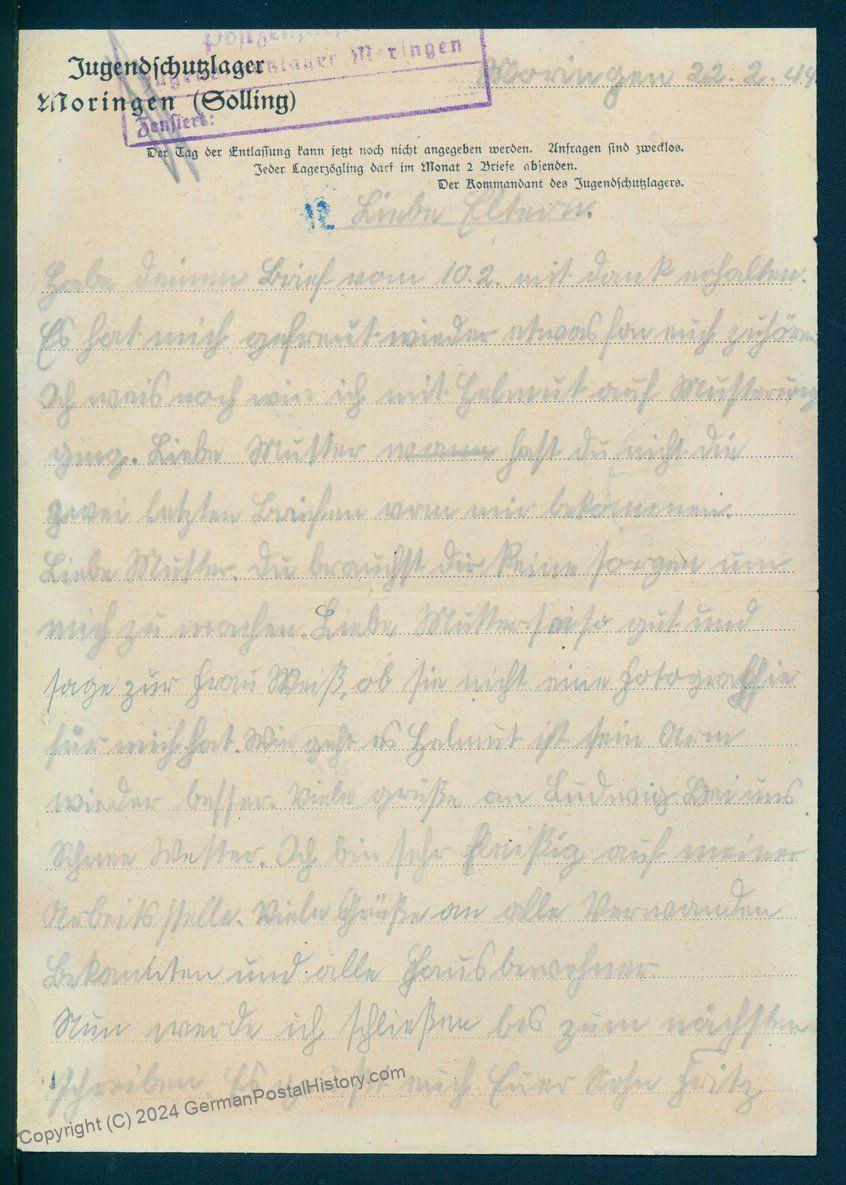 Postzensur
Jugendschutzlager Moringen
Zensiert:
Jugendschutzlager
Moringen (Solling)
Moringen 22. 2. 44
Der Tag der Entlassung kann jetzt noch nicht angegeben werden. Anfragen sind zwecklos.
Jeder Lagerzögling darf im Monat 2 Briefe absenden.
Der Kommandant des Jugendschutzlagers.
12 Liebe Eltern.
Habe deinen Brief vom 10.2. mit dank erhalten.
Es hat mich gefreut wieder etwas fon euch zuhören
Ich weis noch wie ich mit Helmut auf Musterung
ging. Liebe Mutter wann hast du nicht die
zwei letzten Briefen vom mir bekommen.
Liebe Mutter. Du brauchst dir keine sorgen um
mich zu machen. Liebe Mutter sei so gut und
sage zur Frau Weiß, ob sie nicht eine Fotografhie
für mich hat. Wie geht es Helmut ist sein Arm
wieder besser. Viele grüße an Ludwig Bei uns
Schnee Wetter. Ich bin sehr fleißig auf meiner
Arbeitsstelle. Viele Grüße an alle Verwanden
Bekannten und alle Hausbewohner
Nun werde ich schließen bis zum nächsten
schreiben Es grüßt euch Euer Sohn Fritz
Copyright (C) 2024 GermanPostalHistory.com